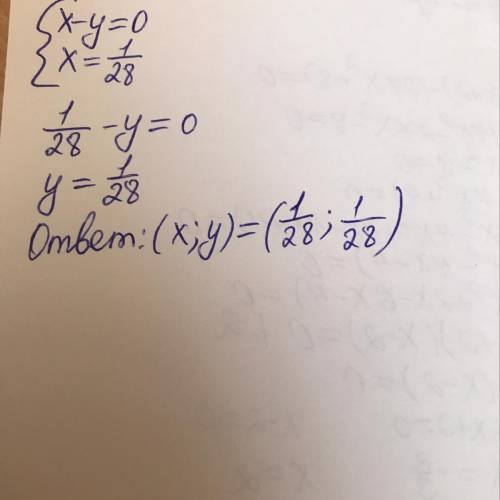 {x-y=0
{x=1/28
1/28-y=0
y=1/28
Ответ: (x;y)=(1/28;1/28)